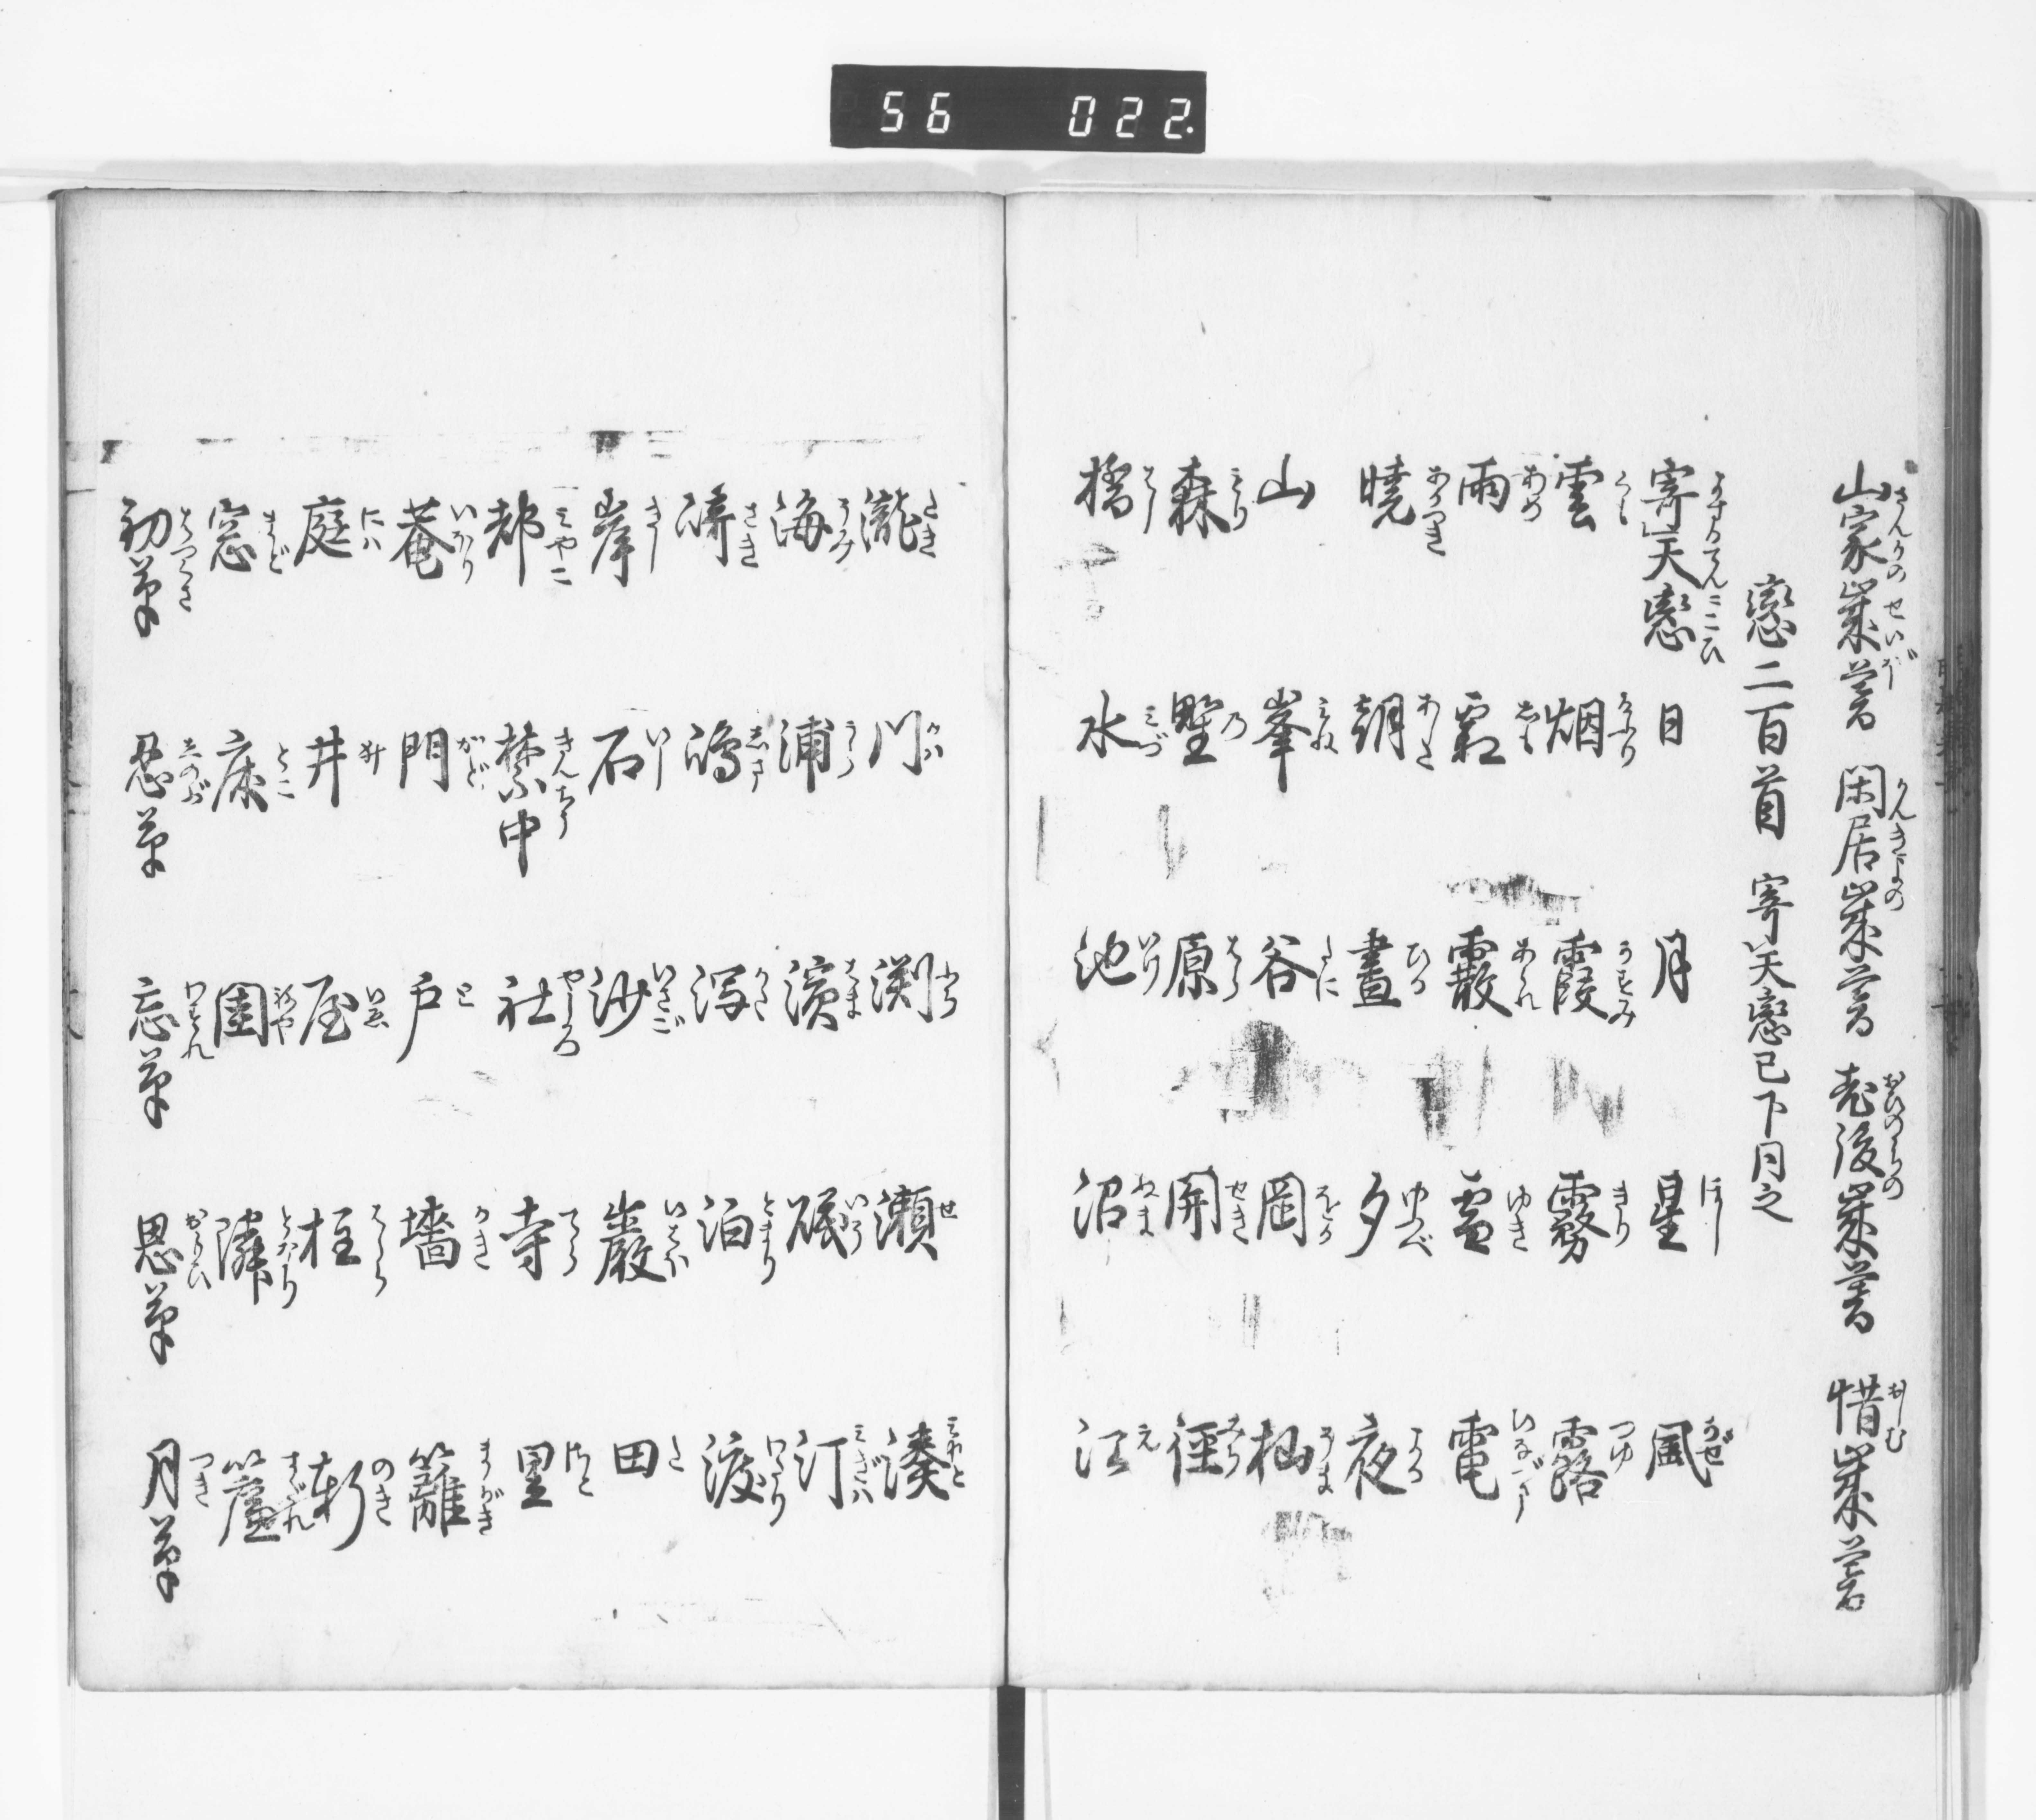 56 022.
山家歳暮 閑居歳暮 老後歳暮 惜歳暮
戀二百首 寄天戀已下同之
寄天戀 日 月 星 風
雲 烟 霞 霧 露
雨 霜 霰 雪 電
曉 朝 晝 夕 夜
山 峯 谷 岡 杣
森 野 原 関 徑
橋 水 池 沼 江
瀧 川 渕 瀬 湊
海 浦 濱 礒 汀
﨑 嶋 潟 泊 渡
岸 石 沙 巖 田
都 禁中 社 寺 里
菴 門 戸 墻 籬
庭 井 屋 柱 軒
窓 床 閨 隣 簾
初草 忍草 忘草 思草 月草